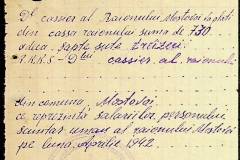 Dl cassier al Raionului Mostovoi va plăti
din cassa raionului suma de 730
adică șapte sute treizeci
cassier al raionului
din comuna Mostovoi
ce reprezintă salariilor personului
sanitar uman al raionului Mostovoi
pe luna Aprilie 1942.